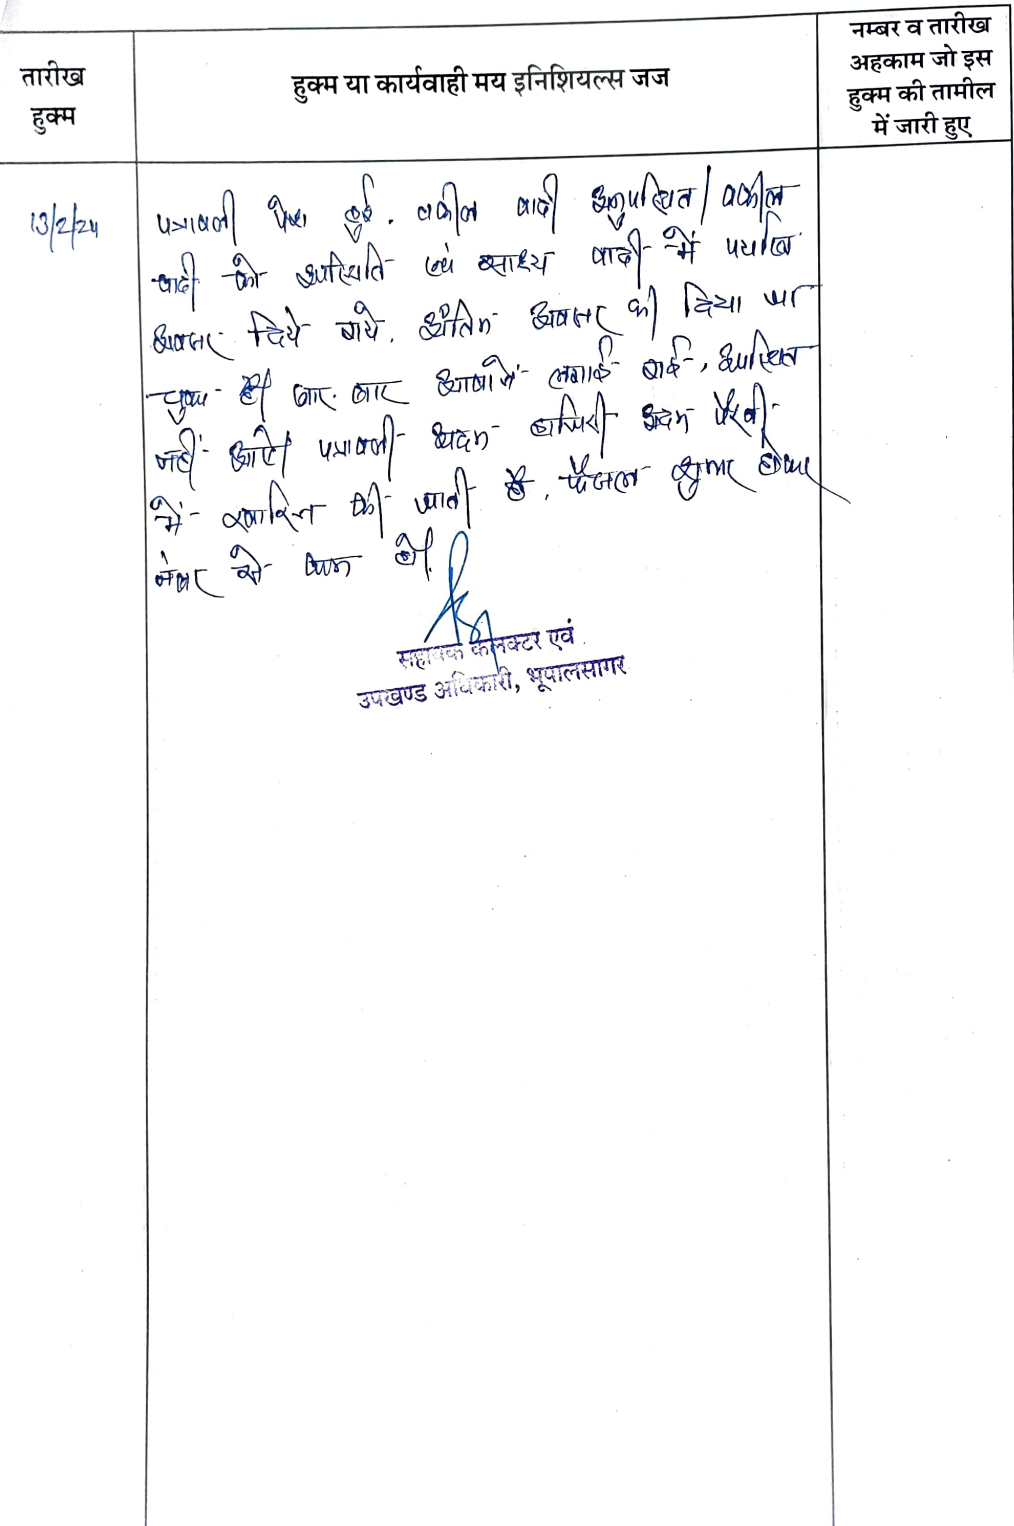 तारीख
हुक्म
हुक्म या कार्यवाही मय इनिशियल्स जज
नम्बर व तारीख
अहकाम जो इस
हुक्म की तामील
में जारी हुए
13/2/24
पत्रावली पेश हुई. वकील वादी अनुपस्थित/ वकील
वादी को उपस्थिति एवं साक्ष्य वादी में पर्याप्त
अवसर दिये गये. अंतिम अवसर भी दिया जा
चुका है। बार बार आवाजें लगाई गई, उपस्थित
नहीं आये। पत्रावली अदम हाजिरी अदम पैरवी
में खारिज की जाती है. फैसल शुमार होकर
नंबर से कम हो.
सहायक कलक्टर एवं
उपखण्ड अधिकारी, भूपालसागर